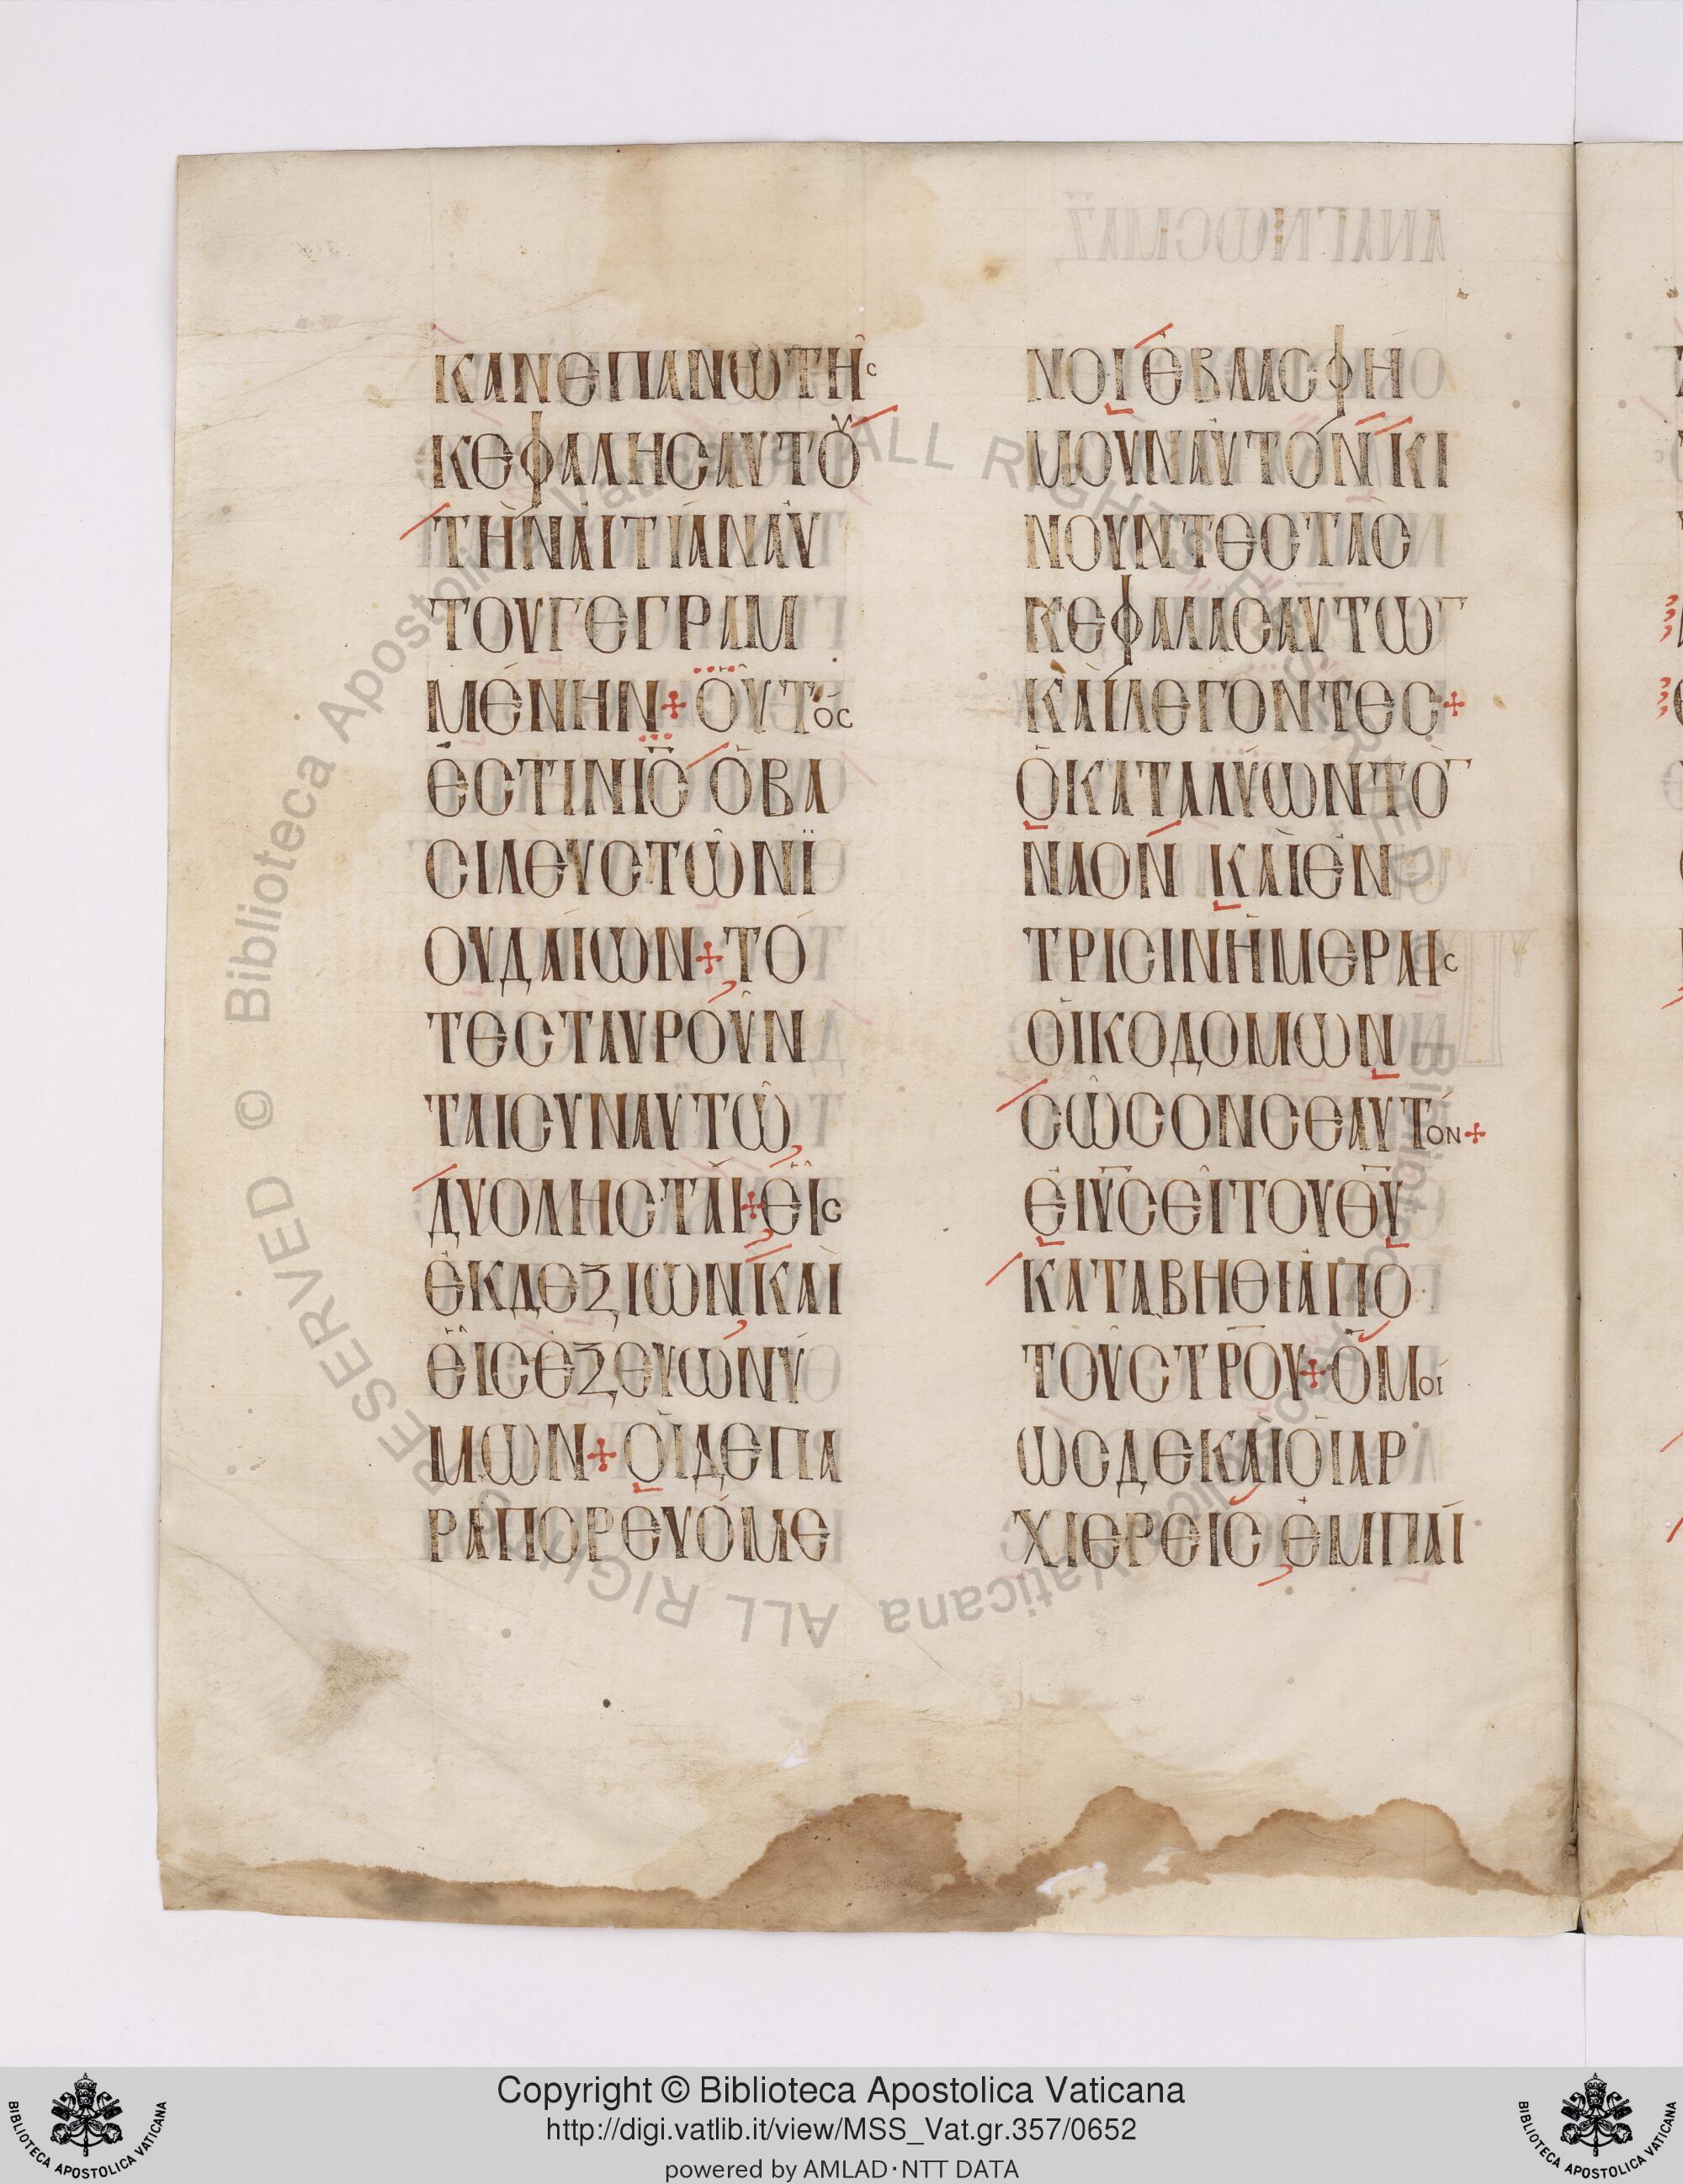 ΚΑΝΕΠΑΝΩΤΗ͂ς
ΚΕΦΑΛΗϹΑΥΤȢ
ΤῊΝΑἸΤΊΑΝΑΥ̓
ΤΟΥΓΕΓΡΑΜ
ΜΈΝΗΝ+ΟΥ͂̔ΤΌϹ
ἘϹΤΙΝΙ̅Ϲ̅ ὉΒΑ
ϹΙΛΕΥϹΤΩ͂ΝΪ
ΟΥΔΑΊΩΝ+ΤΌ
ΤΕϹΤΑΥΡΟΥ͂Ν
ΤΑΙϹΥΝΑΥΤΩ͂
ΔΥΟΛΗϹΤΑΊ+ΕἹϹ
ἘΚΔΕΞΙΩΝΚΑῚ
ΕἹϹἘΞΕΥΩΝΎ
ΜΩΝ+ΟἹΔΕΠΑ
ΡΑΠΟΡΕΥΌΜΕ
ΝΟΙἘΒΛΑϹΦΉ
ΜΟΥΝΑΥ̓ΤΌΝΚΙ
ΝΟΥΝΤΕϹΤᾺϹ
ΚΕΦΑΛᾺϹΑΥΤΩ¯
ΚΑῚΛΈΓΟΝΤΕϹ+
ὉΚΑΤΑΛΎΩΝΤῸ¯
ΝΑΌΝ ΚΑῚἘΝ
ΤΡΙϹΙΝἩΜΈΡΑΙϹ
ΟἸΚΟΔΟΜΩΝ
ϹΩ͂ϹΟΝϹΕΑΥΤΌΝ+
ΕἸΥ̅Ϲ̅ΕἾΤΟΥΘ̅Υ̅
ΚΑΤΑΒΗΘΙἈΠῸ
ΤΟΥ͂ϹΤ̅Ρ̅ΟΥ+ὉΜΟΊ
ΩϹΔΕΚΑῚΟἹΑΡ
ΧΙΕΡΕΙ͂Ϲ ἘΜΠΑΊ
Copyright © Biblioteca Apostolica Vaticana
http://digi.vatlib.it/view/MSS_Vat.gr.357/0652
powered by AMLAD·NTT DATA
BIBLIOTECA APOSTOLICA VATICANA
BIBLIOTECA APOSTOLICA VATICANA
© Biblioteca Apostolica Vaticana ALL RIGHTS RESERVED
© Biblioteca Apostolica Vaticana ALL RIGHTS RESERVED